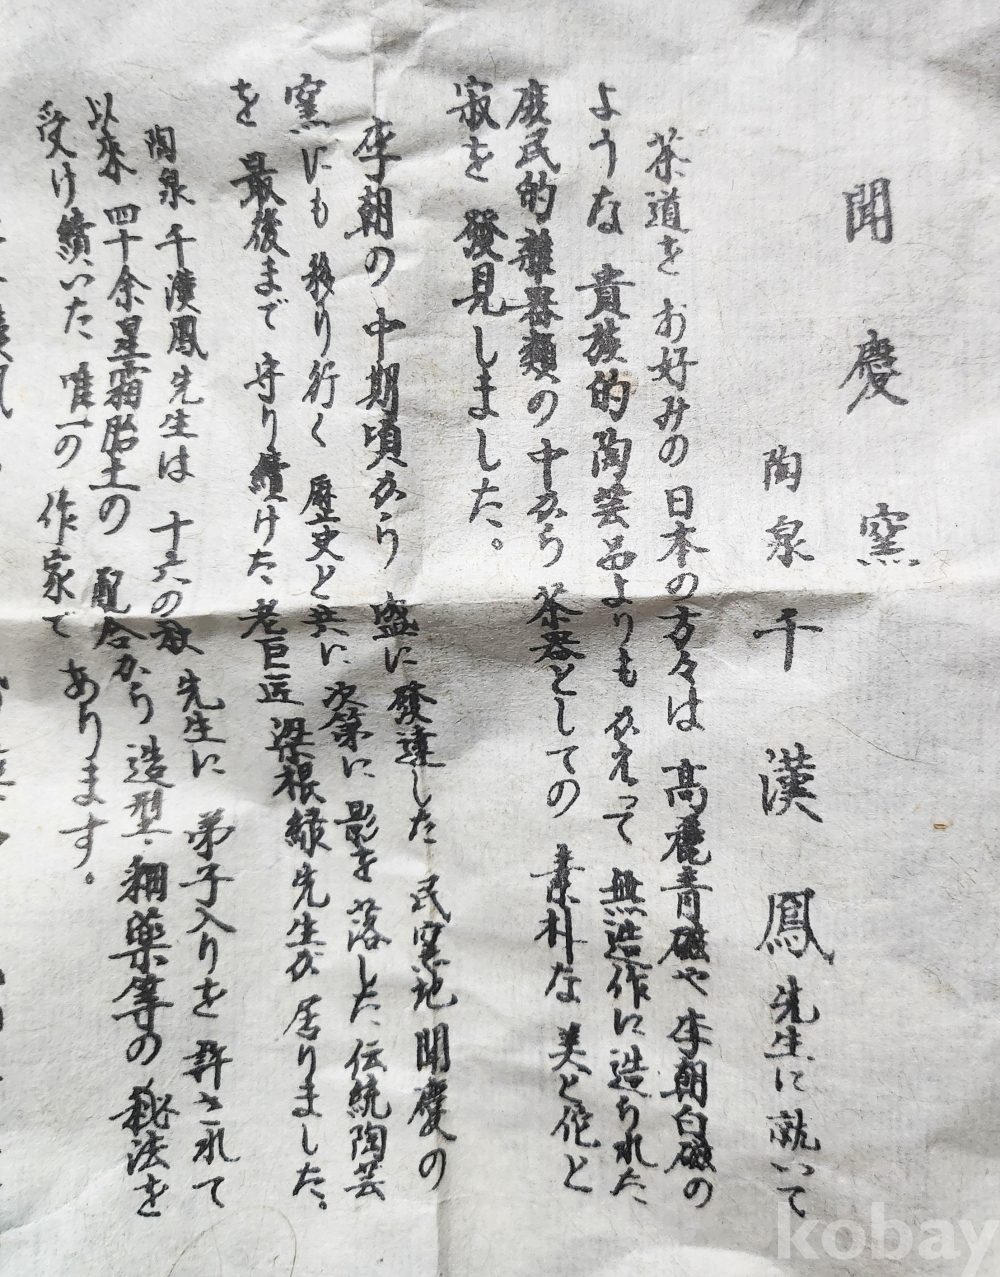 聞慶窯
陶泉 千漢鳳先生に就いて
茶道を お好みの 日本の方々は 高麗青磁や 李朝白磁の
ような 貴族的陶芸品よりも かえって 無造作に造られた
庶民的雑器類の中から 茶器としての 素朴な 美と侘と
寂を 發見しました。
李朝の 中期頃から 盛に發達した 民窯地 聞慶の
窯にも 移り行く 歴史と共に 次第に 影を 落した 伝統陶芸
を 最後まで 守り續けた 老巨匠 梁根緑先生が 居りました。
陶泉 千漢鳳先生は 十六の秋 先生に 弟子入りを 許されて
以来 四十余星霜胎土の 配合から 造型・釉薬等の 秘法を
受け續いた 唯一の 作家で あります。
kobay